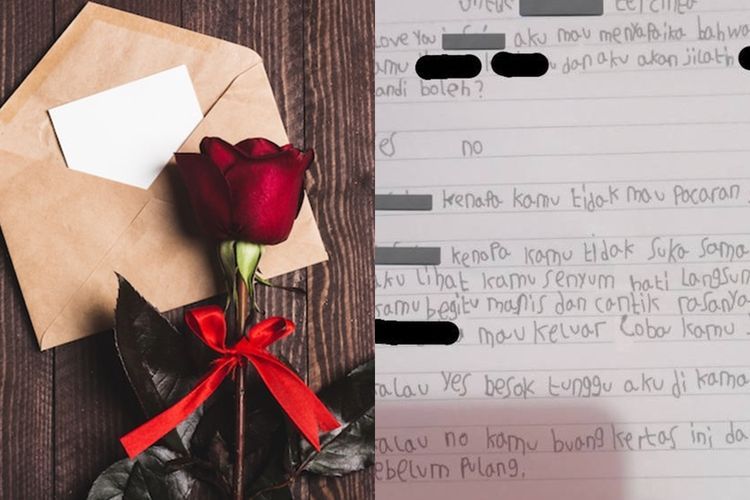 untuk tercinta
love you aku mau menyapaika bahwa
amu dan aku akan jilatin
andi boleh?
es no
kenapa kamu tidak mau pacaran
kenapa kamu tidak suka sama
aku lihat kamu senyum hati langsun
kamu begitu manis dan cantik rasanya
mau keluar Coba kamu
alau yes besok tunggu aku di kama
alau no kamu buang kertas ini da
ebelum pulang.